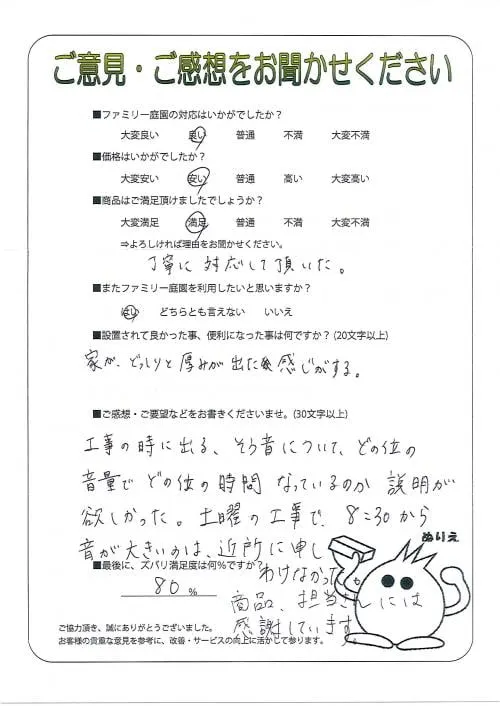 ご意見・ご感想をお聞かせください
■ファミリー庭園の対応はいかがでしたか？
大変良い 良い 普通 不満 大変不満
■価格はいかがでしたか？
大変安い 安い 普通 高い 大変高い
■商品はご満足頂けましたでしょうか？
大変満足 満足 普通 不満 大変不満
⇒よろしければ理由をお聞かせください。
丁寧に対応して頂いた。
■またファミリー庭園を利用したいと思いますか？
はい どちらとも言えない いいえ
■設置されて良かった事、便利になった事は何ですか？(20文字以上)
家が、どっしりと厚みが出た感じがする。
■ご感想・ご要望などをお書きくださいませ。(30文字以上)
工事の時に出る、そう音について、どの位の
音量でどの位の時間なっているのか説明が
欲しかった。土曜の工事で、8:30から
音が大きいのは、近所に申し
わけなかった。
商品、担当さんには
感謝しています。
ぬりえ
■最後に、ズバリ満足度は何％ですか？
80%
ご協力頂き、誠にありがとうございました。
お客様の貴重な意見を参考に、改善・サービスの向上に活かして参ります。